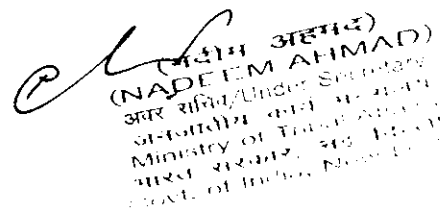 (नदीम अहमद)
(NADEEM AHMAD)
अवर सचिव/Under Secretary
जनजातीय कार्य मंत्रालय
Ministry of Tribal
भारत सरकार, नई
Govt. of India, New